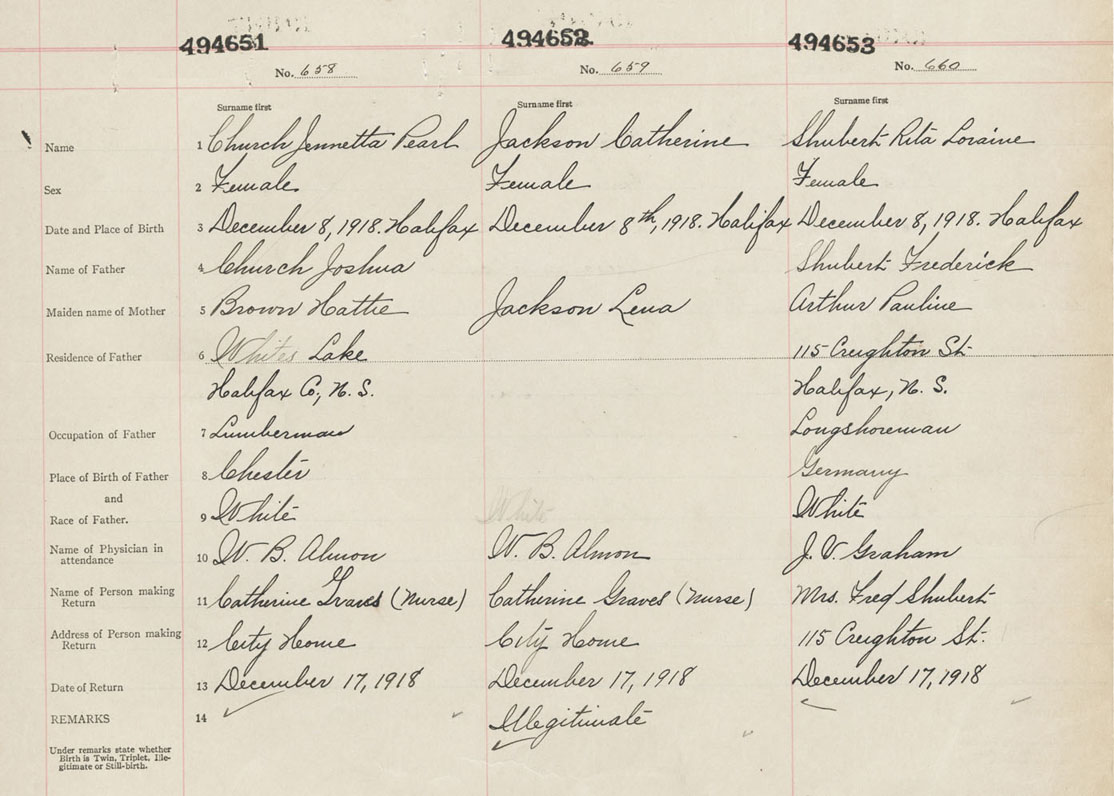 494651 494652 494653
No. 658 No. 659 No. 660
Surname first Surname first Surname first
Name 1 Church Jennetta Pearl Jackson Catherine Shubert Rita Loraine
Sex 2 Female Female Female
Date and Place of Birth 3 December 8, 1918. Halifax December 8th, 1918. Halifax December 8, 1918. Halifax
Name of Father 4 Church Joshua Shubert Frederick
Maiden name of Mother 5 Brown Hattie Jackson Lena Arthur Pauline
Residence of Father 6 Whites Lake 115 Creighton St.
Halifax Co., N. S. Halifax, N. S.
Occupation of Father 7 Lumberman Longshoreman
Place of Birth of Father 8 Chester Germany
and
Race of Father. 9 White White White
Name of Physician in
attendance 10 W. B. Almon W. B. Almon J. V. Graham
Name of Person making
Return 11 Catherine Graves (Nurse) Catherine Graves (Nurse) Mrs. Fred Shubert
Address of Person making
Return 12 City Home City Home 115 Creighton St.
Date of Return 13 December 17, 1918 December 17, 1918 December 17, 1918
REMARKS 14 Illegitimate
Under remarks state whether
Birth is Twin, Triplet, Ille-
gitimate or Still-birth.